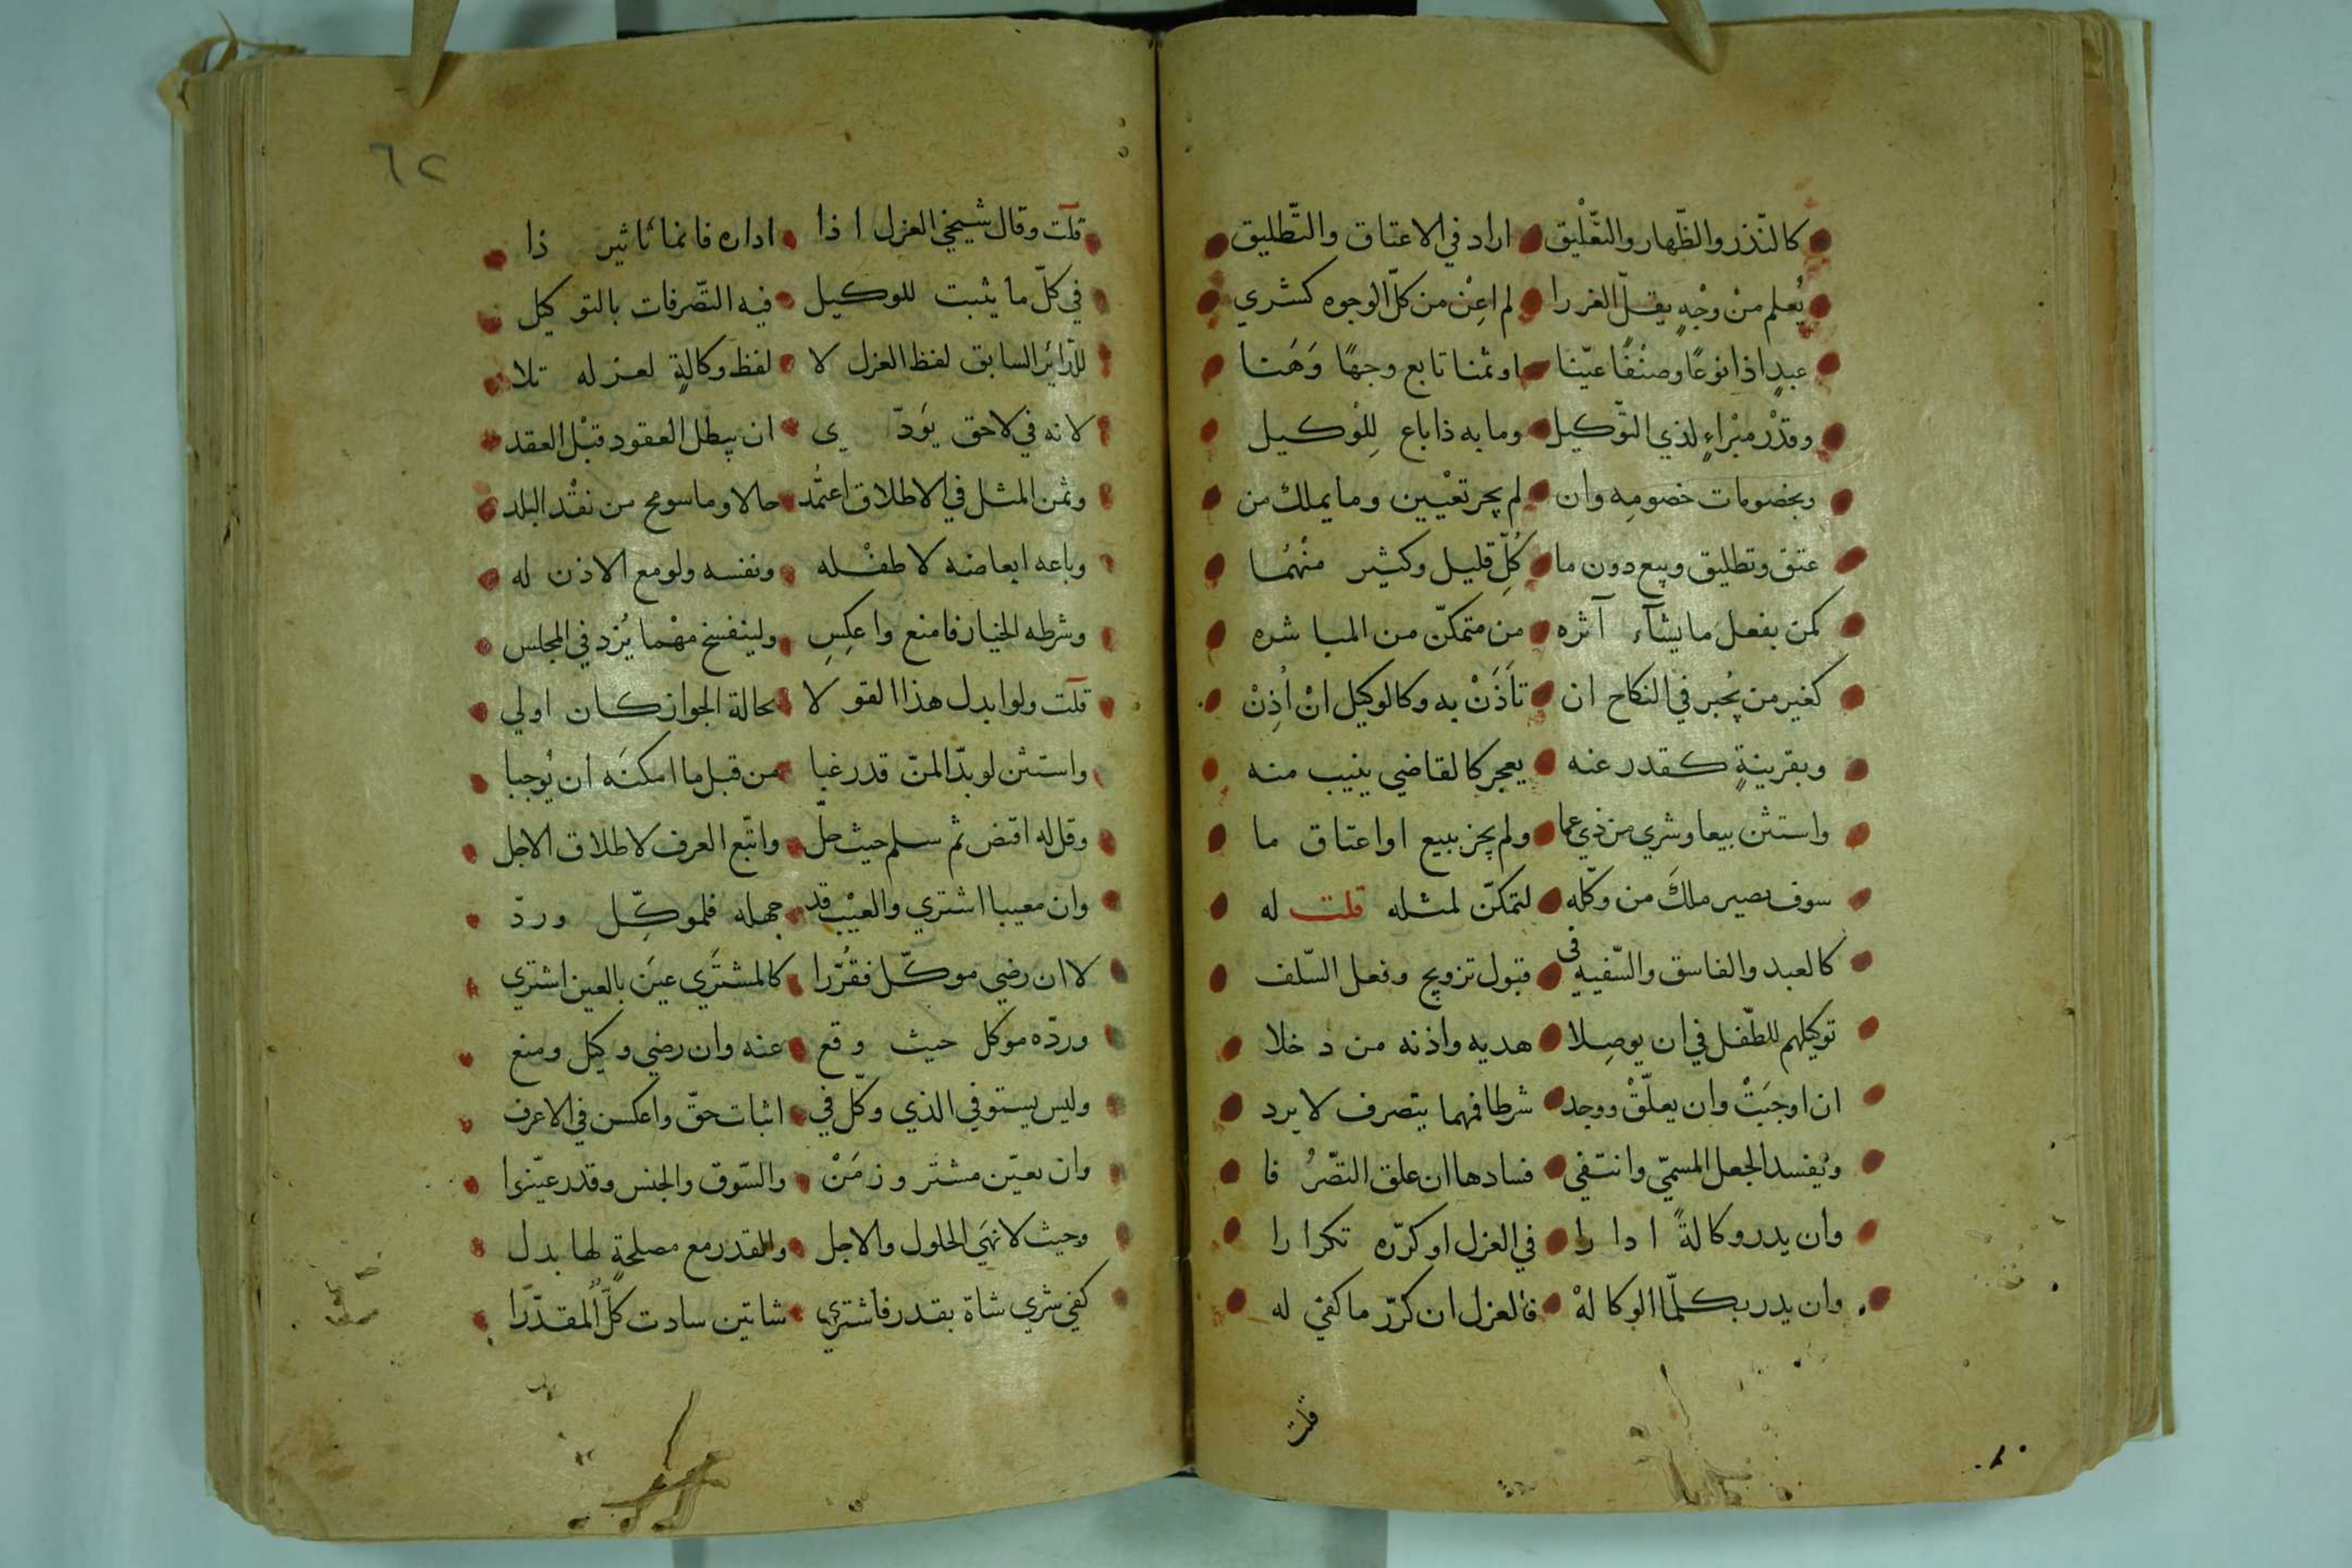 كالنّذر والظّهار والتّعْليق اراد في الاعتاق والتّطليق
يُعلم منْ وجْهٍ يقلّ الغررا لم اعِنْ من كلّ الوجوه كشري
عبدٍ اذا نوعًا وصنْفًا عيّنا او ثمنا تابع وجهًا وَهَنا
وقدْر مبْراءٍ لذي التّوكيل وما به ذا باع لِلْوكيل
وبخصومات خصومِه وان لم يجر تعْيين وما يملك من
عتق وتطليق وبيع دون ما كُلِّ قليل وكثير منْهُما
كمن بفعل ما يشآء آثره من متمكّن من المباشره
كغير من يُجبر في النكاح ان تأذَنْ به وكالوكيل انْ اُذِنْ
وبقرينةٍ كقدر عنه يعجر كالقاضي ينيب منه
واستثن بيعا وشري من ذي عما ولم يجز ببيع او اعتاق ما
سوف يصير ملكَ من وكّله لتمكّن لمثله قلت له
كالعبد والفاسق والسّفيه في قبول تزويج وفعل السّلف
توكيلهم للطّفل في ان يوصِلا هديه واذنه من دخلا
ان اوجَبَتْ وان يعلّقْ ووجد شرطا فمهما يتصرف لا يرد
ويُفسد الجعل المسمّي وانتفي فسادها ان علق التصّرُفا
وان يدر وكالةً ادارا في العزل او كرّره تكرارا
وان يدر بكلّما الوكالهْ فالعزل ان كرّر ما كفي له
قلت
٦٢
قلت وقال شيخي العزل اذا اداره فانما تاثير ذا
في كلّ ما يثبت للوكيل فيه التصّرفات بالتوكيل
للدّاير السابق لفظ العزل لا لفظ وكالةٍ لعزله تلا
لانه في لاحق يَودّي ان يبطل العقود قبْل العقد
وثمن المثل في الاطلاق اعتُمد حالا وما سومح من نقْد البلد
وباعه ابعاضه لا طفْله ونفسه ولو مع الاذن له
وشرطه الخيار فامنع واعكِسِ ولينفسخ مهْما يُزد في المجلس
قلت ولو ابدل هذا القولا بحالة الجواز كان اولي
واستثن لو بدّا لمنّ قد رغبا من قبل ما امكنَه ان يُوجبا
وقل له اقبض ثم سلم حيث حلّ واتّبع العرف لاطلاق الاجل
وان معيبا اشتري والعيْب قد جهله فلموكِّل وردّ
لا ان رضي موكّل فقُرّرا كالمشتَري عيَن بالعين اشتري
وردّه موكل حيث وقع عنه وان رضي وكيل ومنع
وليس يستوفي الذي وكّل في اثبات حقّ واعكسن في الاعرف
وان يعيّن مشتَر وزمَنْ والسّوق والجنس وقدر عيّنوا
وحيث لا نهَي الحلول والاجل وللقدر مع مصلحةٍ لها بدل
كفي شري شاة بقدر فاشتري شاتين سادت كلٌّ المقدّرا